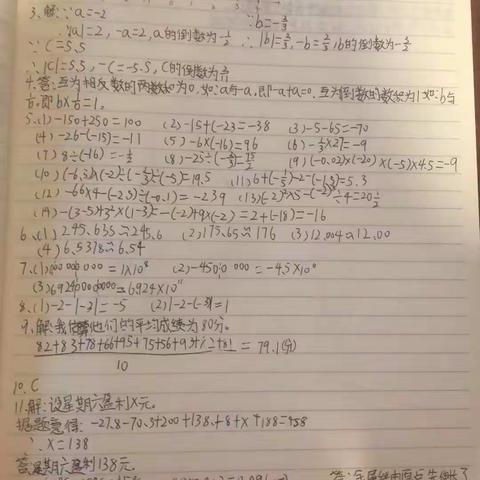 3.解:∵a=-2 ∵b=-2/3
∴|a|=2,-a=2,a的倒数为-1/2 ∴|b|=2/3,-b=2/3,b的倒数为-3/2
∵C=5.5
∴|C|=5.5,-C=-5.5,C的倒数为2/11
4.答:互为相反数的两数和为0,如:a与-a,即-a+a=0.互为倒数的数积为1如:b与
即b×=1。
5.(1)-150+250=100 (2)-15+(-23=-38 (3)-5-65=-70
(4)-26-(-15)=-11 (5)-6×(-16)=96 (6)-1/3×27=-9
(7)8÷(-16)=-1/2 (8)-25÷(-)= (9)(-0.02)×(-20)×(-5)×4.5=-9
(10)(-6.5)×(-2)÷(-)÷(-5)=19.5 (11)6+(-1/5)-2-(-1.5)=5.3
(12)-66×4-(-2.5)÷(-0.1)=-239 (13)(-2)²×5-(-2)³÷4=20
(14)-(3-5)+3²×(1-3)=-(-2)+9×(-2)=2+(-18)=-16
6.(1)245.635≈245.6 (2)175.65≈176 (3)12.004≈12.00
(4)6.5378≈6.54
7.(1)100 000 000=1×10⁸ (2)-4500 000=-4.5×10⁶
(3)692400000000=6.924×10¹¹
8.(1)-2-|-3|=-5 (2)|-2-(-3)|=1
9.解:我估算他们的平均成绩为80分。
82+83+78+66+95+75+56+93+82+81 = 79.1(分)
10
10.C
11.解:设星期六盈利X元。
据题意得:-27.8-70.3+200+138.1-8+X+188=458
∴X=138
答:星期六盈利138元.